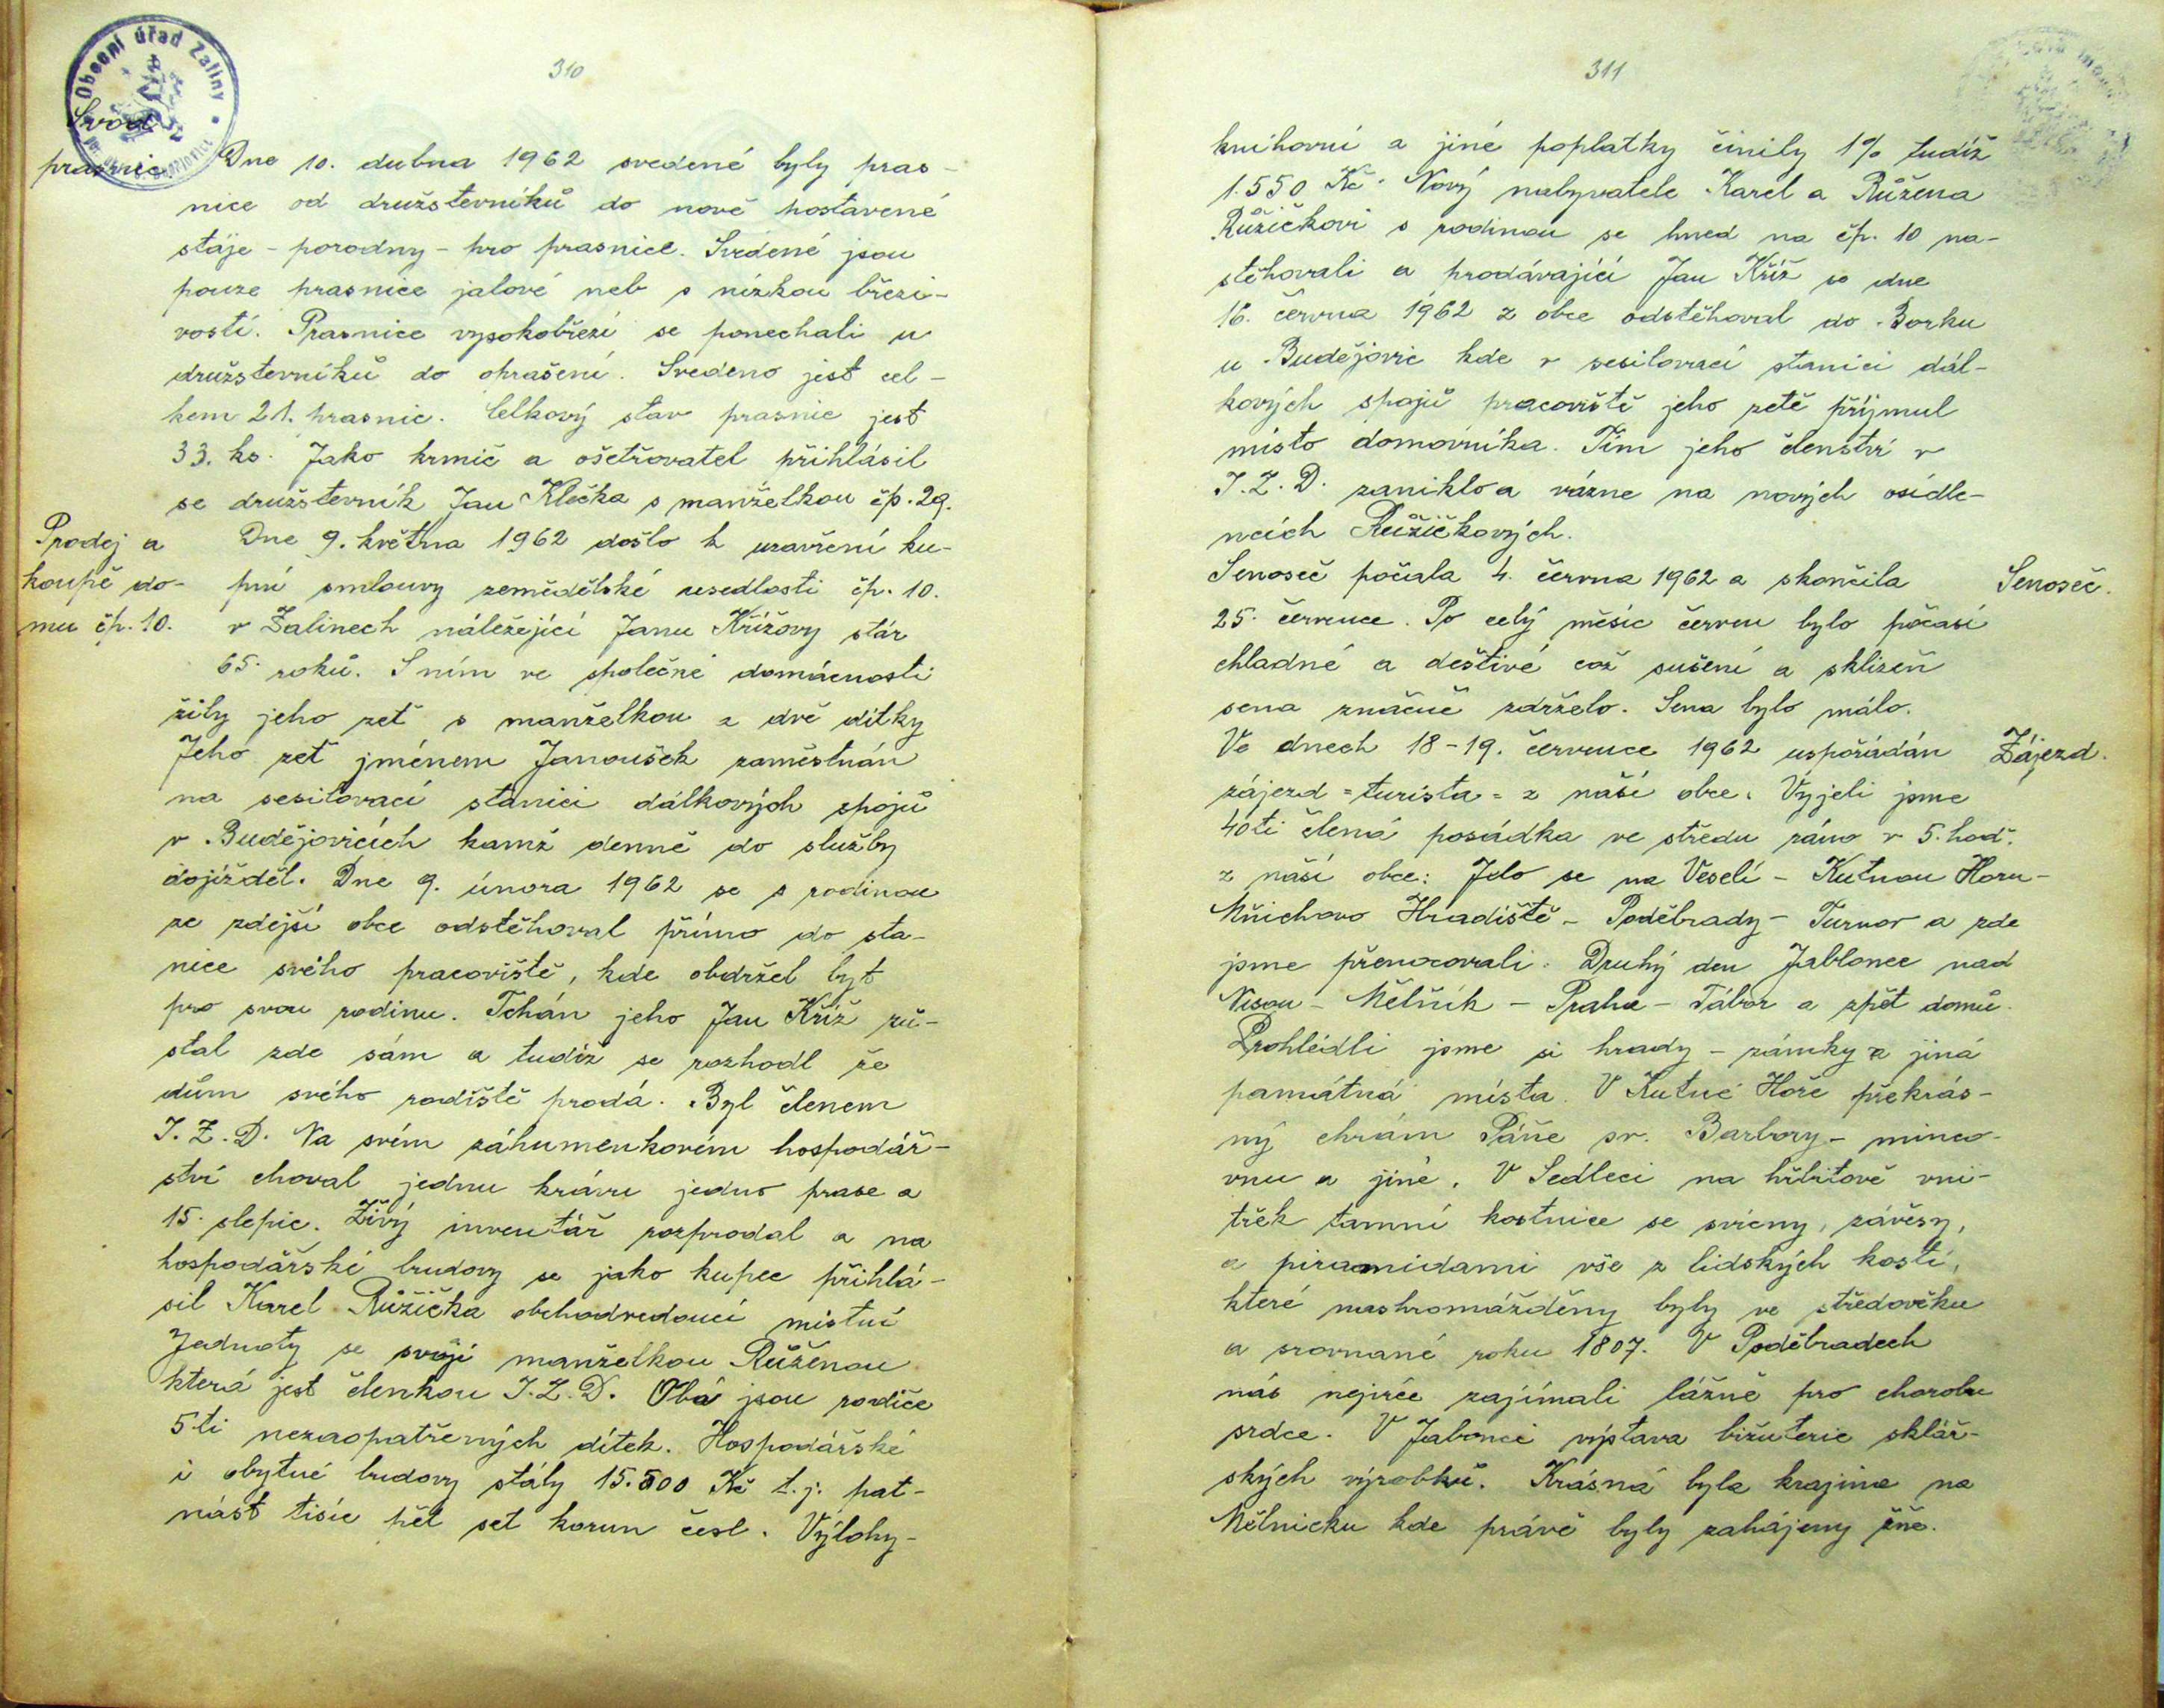 310
Obecní úřad Zaliny
Svod
prasnic.
Dne 10. dubna 1962 svedené byly pras-
nice od družstevníků do nově postavené
stáje - porodny - pro prasnice. Svedené jsou
pouze prasnice jalové neb s nízkou březi-
vostí. Prasnice vysokobřezí se ponechali u
družstevníků do oprašení. Svedeno jest cel-
kem 21. prasnic. Celkový stav prasnic jest
33. ks. Jako krmič a ošetřovatel přihlásil
se družstevník Jan Klečka s manželkou čp. 29.
Prodej a
koupě do-
mu čp. 10.
Dne 9. května 1962 došlo k uzavření ku-
pní smlouvy zemědělské usedlosti čp. 10.
v Zalinech náležející Janu Křížovy stár
65. roků. S ním ve společné domácnosti
žily jeho zeť s manželkou a dvě dítky
Jeho zeť jménem Janoušek zaměstnán
na sesilovací stanici dálkových spojů
v Budějovicích kamž denně do služby
dojížděl. Dne 9. února 1962 se s rodinou
ze zdejší obce odstěhoval přímo do sta-
nice svého pracoviště, kde obdržel byt
pro svou rodinu. Tchán jeho Jan Kříž zů-
stal zde sám a tudíž se rozhodl že
dům svého rodiště prodá. Byl členem
J. Z. D. Na svém záhumenkovém hospodář-
ství choval jednu krávu jedno prase a
15. slepic. Živý inventář rozprodal a na
hospodářské budovy se jako kupec přihlá-
sil Karel Růžička obchodvedoucí místní
Jednoty se svojí manželkou Růženou
která jest členkou J. Z. D. Obá jsou rodiče
5ti nezaopatřených dítek. Hospodářské
i obytné budovy stály 15.500 Kč t. j. pat-
nást tisíc pět set korun česl. Výlohy-
311
knihovní a jiné poplatky činily 1% tudíž
1.550 Kč. Nový nabyvatele Karel a Růžena
Růžičkovi s rodinou se hned na čp. 10 na-
stěhovali a prodávající Jan Kříž so dne
16. června 1962 z obce odstěhoval do Borku
u Budějovic kde v sesilovací stanici dál-
kových spojů pracoviště jeho zetě příjmul
místo domovníka. Tím jeho členství v
J. Z. D. zaniklo a vázne na nových osídle-
ncích Růžičkových.
Senoseč počala 4. června 1962 a skončila
Senoseč.
25. července. Po celý měsíc červen bylo počasí
chladné a deštivé což sušení a sklizeň
sena značně zdrželo. Sena bylo málo.
Ve dnech 18-19. července 1962 uspořádán
Zájezd.
zájezd = turista = z naší obce. Vyjeli jsme
40ti člená posádka ve středu ráno v 5. hod.
z naší obce: Jelo se na Veselí - Kutnou Horu -
Mnichovo Hradiště - Poděbrady - Turnov a zde
jsme přenocovali. Druhý den Jablonec nad
Nisou - Mělník - Praha - Tábor a zpět domů.
Prohlédli jsme si hrady - zámky a jiná
památná místa. V Kutné Hoře překrás-
ný chrám Páňe sv. Barbory - minco-
vnu a jiné. V Sedleci na hřbitově vni-
třek tamní kostnice se svícny, závěsy,
a piramidami vše z lidských kostí,
které nashromážděny byly ve středověku
a srovnané roku 1807. V Poděbradech
nás nejvíce zajímali lázně pro chorobu
srdce. V Jabonci výstava bižuterie sklář-
ských výrobků. Krásná byla krajina na
Mělnicku kde právě byly zahájeny žně.